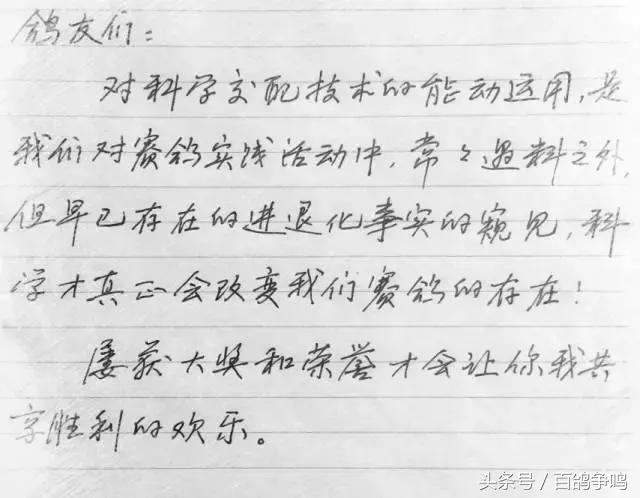 鸽友们：
对科学交配技术的能动运用，是
我们对赛鸽实践活动中，常々遇料之外，
但早已存在的进退化事实的窥见，科
学才真正会改变我们赛鸽的存在！
屡获大奖和荣誉才会让你我共
享胜利的欢乐。
头条号 / 百鸽争鸣